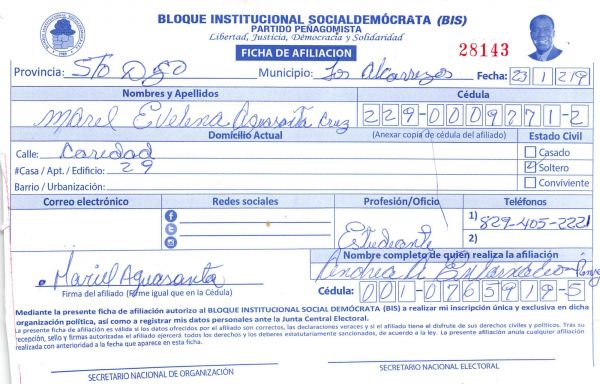 BLOQUE INSTITUCIONAL SOCIALDEMÓCRATA (BIS)
PARTIDO PEÑAGOMISTA
Libertad, Justicia, Democracia y Solidaridad
FICHA DE AFILIACION
28143
Provincia: Sto Dgo Municipio: Los Alcarrizos Fecha: 23 1 219
Nombres y Apellidos Cédula
Mariel Evelina Aguasanta Cruz 229-0009771-2
Domicilio Actual (Anexar copia de cédula del afiliado) Estado Civil
Calle: Caridad Casado
#Casa / Apt. / Edificio: 29 Soltero
Barrio / Urbanización: Conviviente
Correo electrónico Redes sociales Profesión/Oficio Teléfonos
Estudiante 1) 829-405-2221
2)
Nombre completo de quien realiza la afiliación
Mariel Aguasanta Andrea A. Encarnación
Firma del afiliado (Firme igual que en la Cédula) Cédula: 001-0765919-5
Mediante la presente ficha de afiliación autorizo al BLOQUE INSTITUCIONAL SOCIAL DEMÓCRATA (BIS) a realizar mi inscripción única y exclusiva en dicha
organización política, así como a registrar mis datos personales ante la Junta Central Electoral.
La presente ficha de afiliación es válida si los datos ofrecidos por el afiliado son correctos, las declaraciones veraces y si el afiliado tiene el disfrute de sus derechos civiles y políticos. Tras su
recepción, sello y firmas autorizadas el afiliado ejercerá todos los derechos y los deberes estatutariamente sancionados, de acuerdo a la ley. La presente afiliación anula cualquier afiliación
realizada con anterioridad a la fecha que aparece en esta ficha.
SECRETARIO NACIONAL DE ORGANIZACIÓN SECRETARIO NACIONAL ELECTORAL